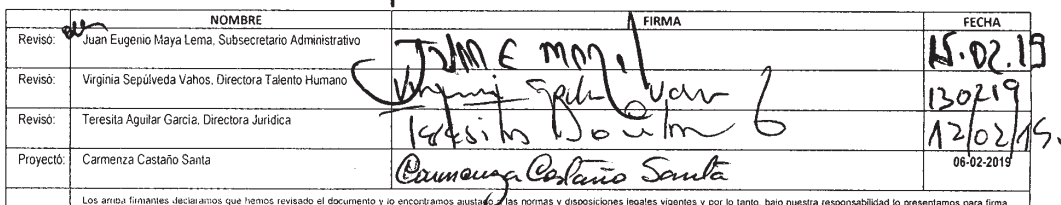 NOMBRE FIRMA FECHA
Revisó: Juan Eugenio Maya Lema, Subsecretario Administrativo 15.02.19
Revisó: Virginia Sepúlveda Vahos, Directora Talento Humano Virginia 130219
Revisó: Teresita Aguilar Garcia, Directora Jurídica Teresita 12/02/19.
Proyectó: Carmenza Castaño Santa Carmenza Castaño Santa 06-02-2019
Los arriba firmantes declaramos que hemos revisado el documento y lo encontramos ajustado a las normas y disposiciones legales vigentes y por lo tanto, bajo nuestra responsabilidad lo presentamos para firma